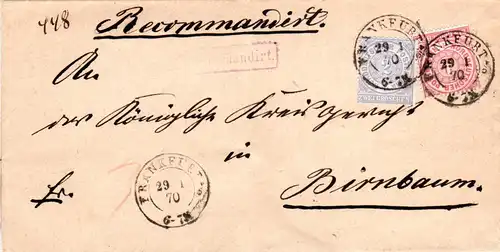 448 Recommandirt.
mandirt.
An
das Königliche Kreisgericht
in
Birnbaum.
Fr.
FRANKFURT
29 1
70
6-7N
FRANKFURT
29 1
70
6-7N
FRANKFURT
29 1
70
6-7N